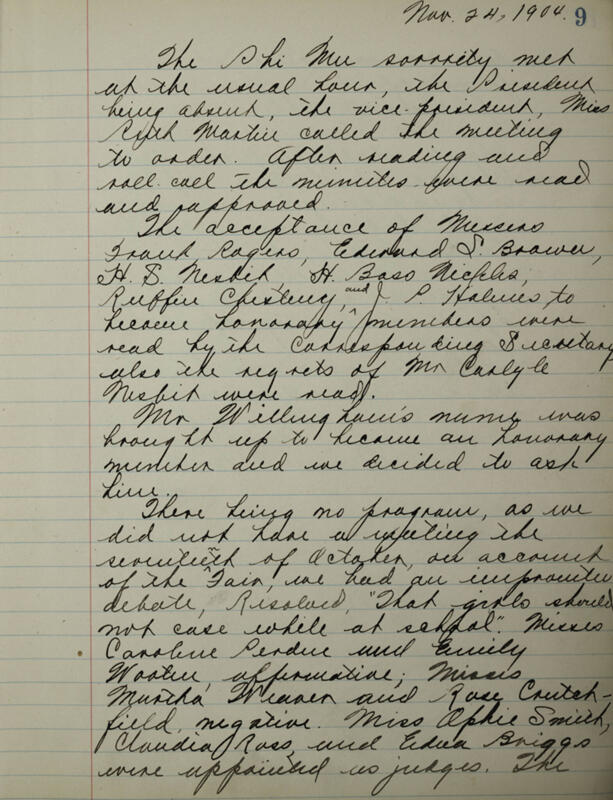 Nov. 24, 1904. 9
The Phi Mu sorority met
at the usual hour, the President
being absent, the vice president, Miss
Ruth Martin called the meeting
to order. After reading and
roll call the minutes were read
and approved.
The acceptance of Messers
Frank Rogers, Edward S. Brower,
H. S. Nesbit, H. Baso
Ruffin and J. P. Holmes, to
become honorary members were
read by the Corresponding Secretary
also the regrets of Mr Carlyle
Nesbit were read.
Mr Willingham's name was
brought up to become an honorary
member and we decided to ask
him.
There being no program, as we
did not have a meeting the
of October, on account
of the Fair, we had an impromtu
debate, Resolved, "That girls should
not case while at school". Misses
Caroline Perdue and Emily
Wooten, affirmative; Misses
Martha Weaver and Rose Crutch-
field, negative. Miss Ophie Smith,
Claudia Ross, and Edna Briggs
were appointed as judges. The